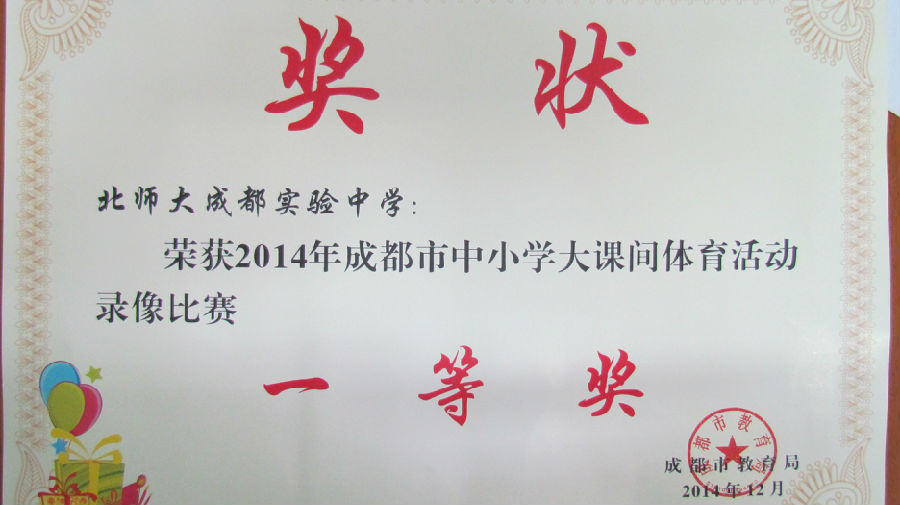 奖状
北师大成都实验中学：
荣获2014年成都市中小学大课间体育活动
录像比赛
一等奖
成都市教育局
2014年12月